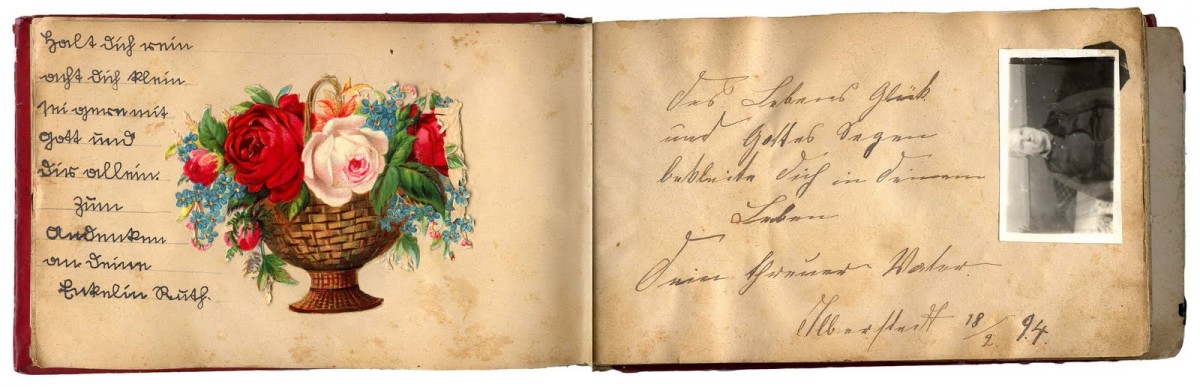 Halt dich rein
acht dich klein
sei gern mit
Gott und
dir allein.
Zum
Andenken
an deine
Enkelin Ruth.
Des Lebens Glück
und Gottes Segen
bekleite Dich in Deinem
Leben
Dein threuer Vater.
Ilberstedt 18/2 94.